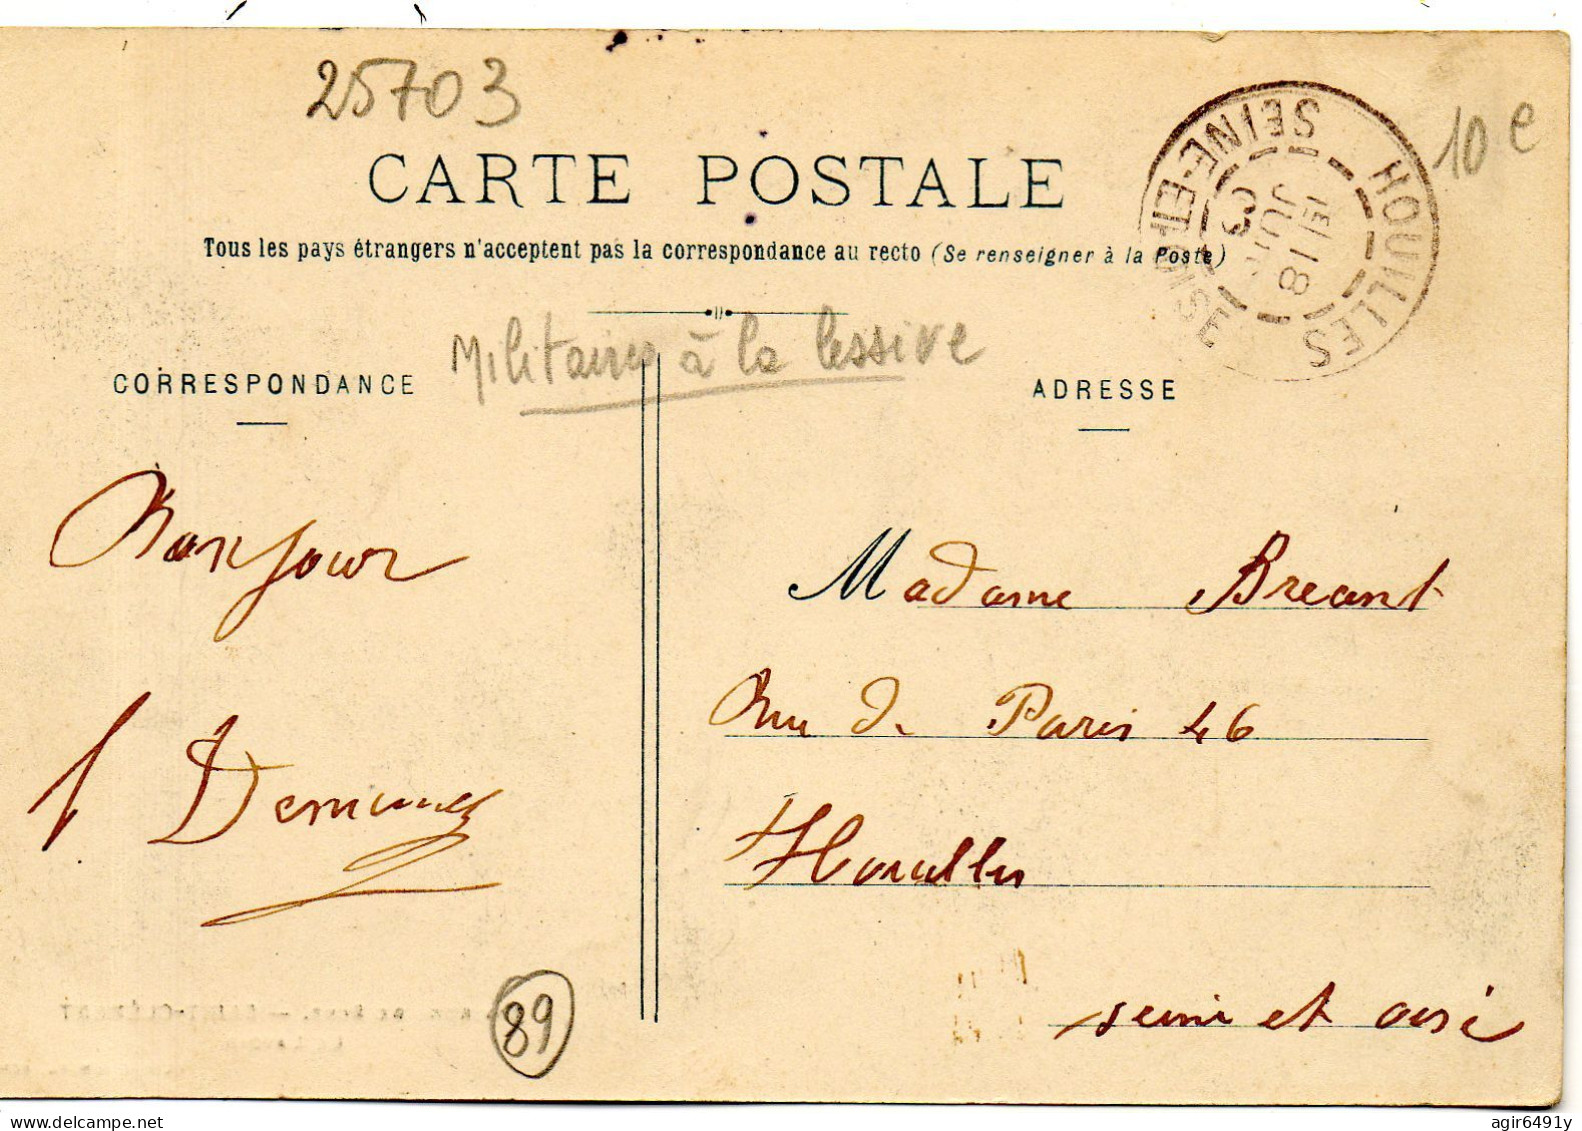 25703
10e
CARTE POSTALE
Tous les pays étrangers n'acceptent pas la correspondance au recto (Se renseigner à la Poste)
HOUILLES
SEINE-ET-OISE
Militaires à la lessive
CORRESPONDANCE
ADRESSE
Bonjour
Madame Breant
Rue de Paris 46
Houilles
seine et oise
89
delcampe.net
agir6491y